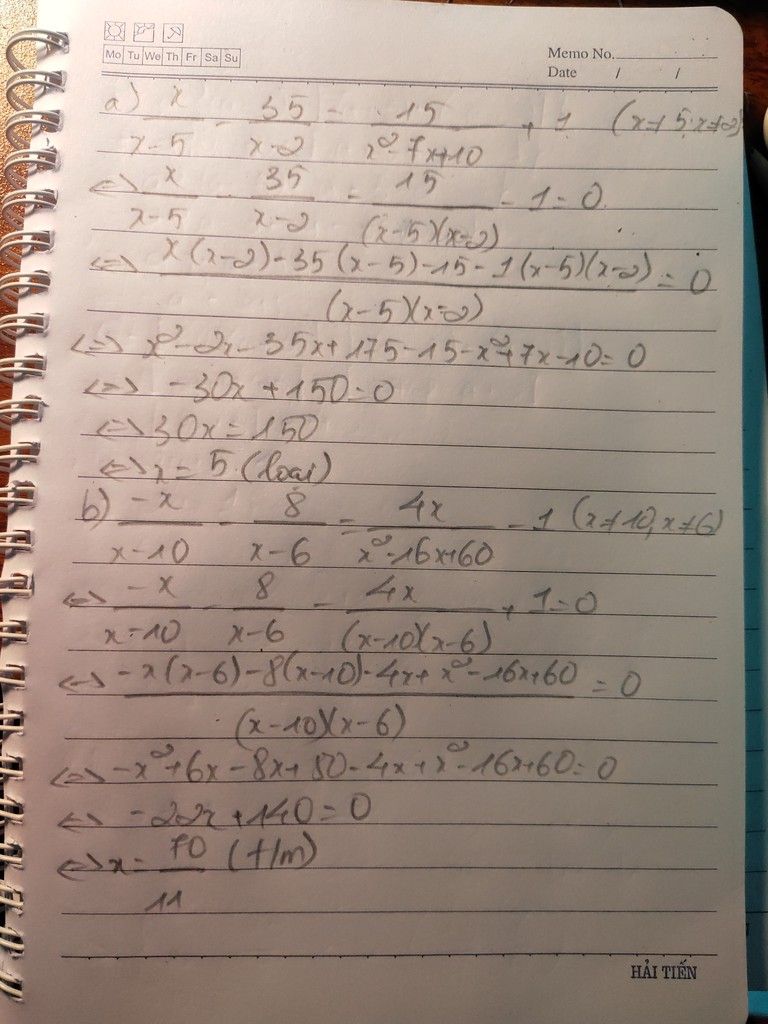 Mo Tu We Th Fr Sa Su
Memo No.
Date / /
a) x/(x-5) - 35/(x-2) = 15/(x²-7x+10) + 1 (x≠5; x≠2)
<=> x/(x-5) - 35/(x-2) - 15/((x-5)(x-2)) - 1 = 0
<=> (x(x-2) - 35(x-5) - 15 - 1(x-5)(x-2))/((x-5)(x-2)) = 0
<=> x²-2x-35x+175-15-x²+7x-10=0
<=> -30x+150=0
<=> 30x=150
<=> x=5 (loại)
b) -x/(x-10) - 8/(x-6) = 4x/(x²-16x+60) - 1 (x≠10, x≠6)
<=> -x/(x-10) - 8/(x-6) - 4x/((x-10)(x-6)) + 1=0
<=> (-x(x-6)-8(x-10)-4x+x²-16x+60)/((x-10)(x-6)) = 0
<=> -x²+6x-8x+80-4x+x²-16x+60=0
<=> -22x+140=0
<=> x= 70/11 (t/m)
HẢI TIẾN